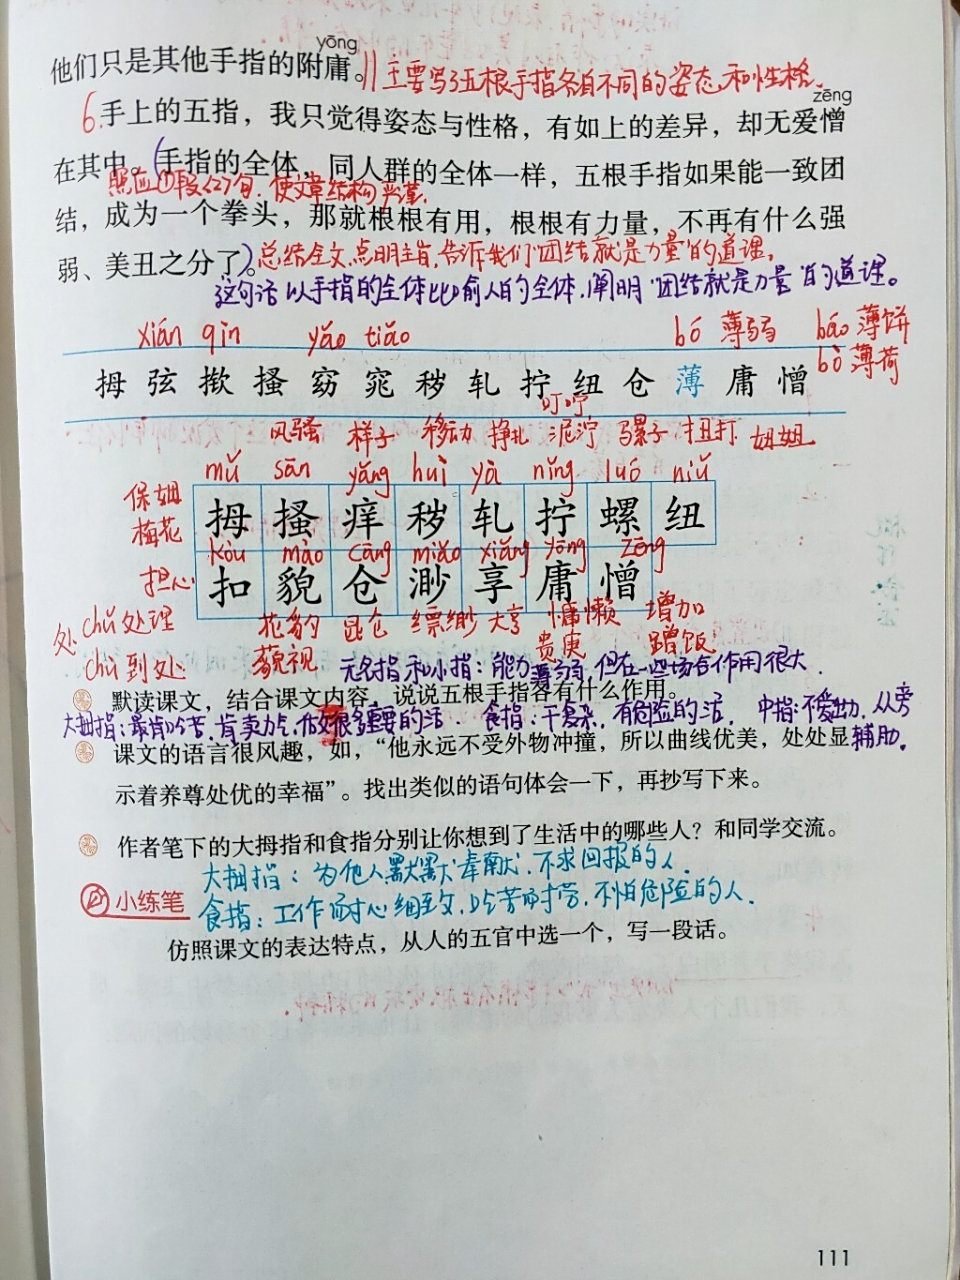 yōng
他们只是其他手指的附庸。// 主要写了五根手指各自不同的姿态和性格。
zēng
6.手上的五指，我只觉得姿态与性格，有如上的差异，却无爱憎
在其中。(手指的全体，同人群的全体一样，五根手指如果能一致团
照应①段<2>句，使文章结构严谨。
结，成为一个拳头，那就根根有用，根根有力量，不再有什么强
弱、美丑之分了)。总结全文，点明主旨，告诉我们"团结就是力量"的道理。
这句话以手指的全体比喻人的全体，阐明"团结就是力量"的道理。
xián qìn yǎo tiǎo bó 薄弱 báo 薄饼
bò 薄荷
拇 弦 揿 搔 窈 窕 秽 轧 拧 纽 仓 薄 庸 憎
叮咛
风骚 样子 移动 挣扎 泥泞 骡子 扭打 妞妞
mǔ sāo yǎng huì yà nǐng luó niǔ
保姆 拇 搔 痒 秽 轧 拧 螺 纽
梅花
kòu mào cāng miǎo xiǎng yōng zēng
担心 扣 貌 仓 渺 享 庸 憎
处 chǔ 处理 花豹 昆仑 缥缈 大亨 慵懒 增加
chù 到处 藐视 贵庚 蹭饭
无名指和小指：能力薄弱，但在一些场合作用很大。
默读课文，结合课文内容，说说五根手指各有什么作用。
大拇指：最肯吃苦，肯卖力气，做很多重要的活。 食指：干复杂，有危险的活。 中指：不爱出力，从旁
课文的语言很风趣，如，“他永远不受外物冲撞，所以曲线优美，处处显 辅助。
示着养尊处优的幸福”。找出类似的语句体会一下，再抄写下来。
作者笔下的大拇指和食指分别让你想到了生活中的哪些人？和同学交流。
大拇指：为他人默默奉献，不求回报的人。
小练笔 食指：工作耐心细致，吃苦耐劳，不怕危险的人。
仿照课文的表达特点，从人的五官中选一个，写一段话。
111